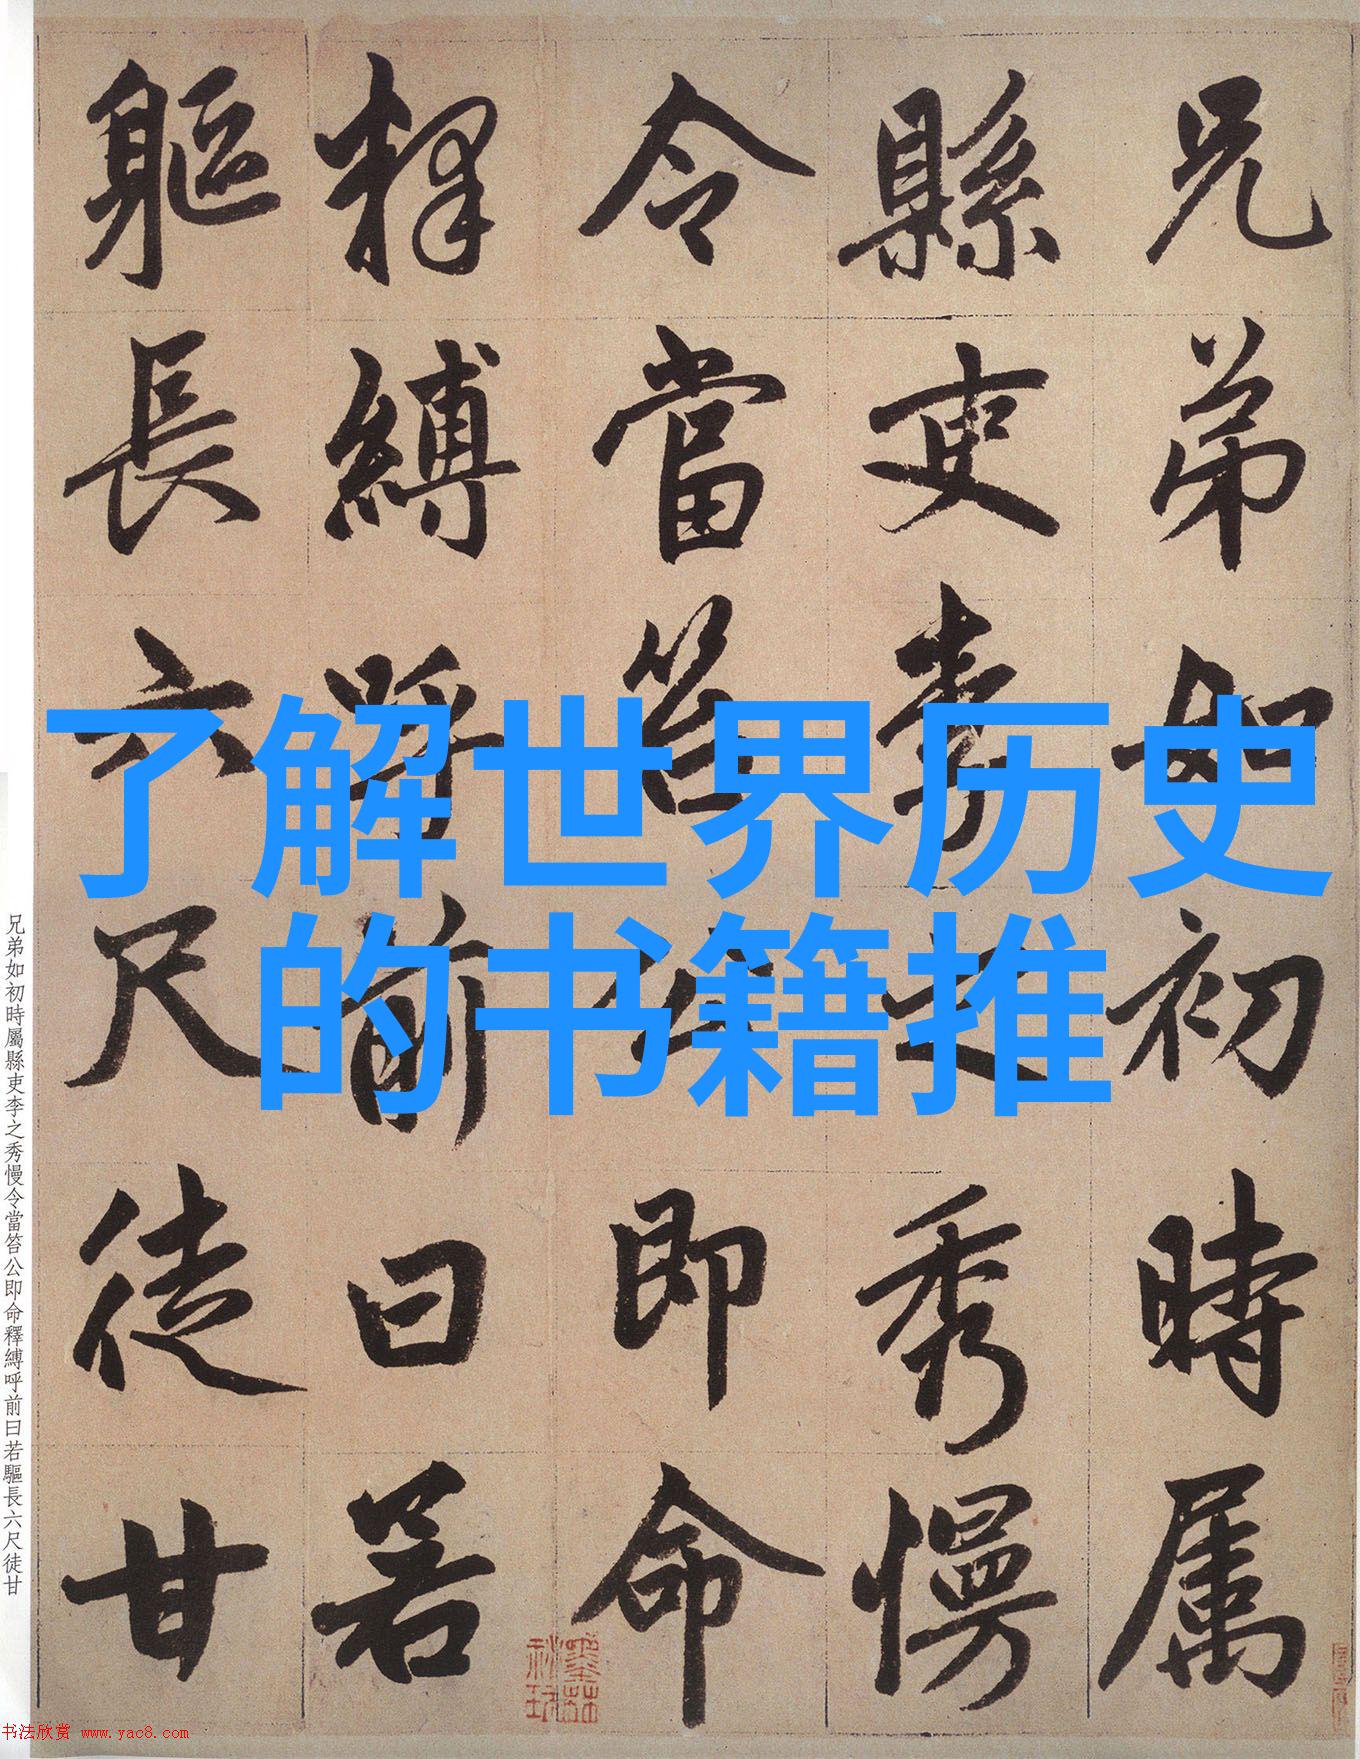 兄弟如初時属
縣吏李之秀慢
令當笞公即命
釋縛呼前曰若
軀長六尺徒甘
了解世界历史
的书籍推
兄弟如初時屬縣吏李之秀慢令當笞公即命釋縛呼前曰若驅長六尺徒甘
书法欣赏 www.yac8.com